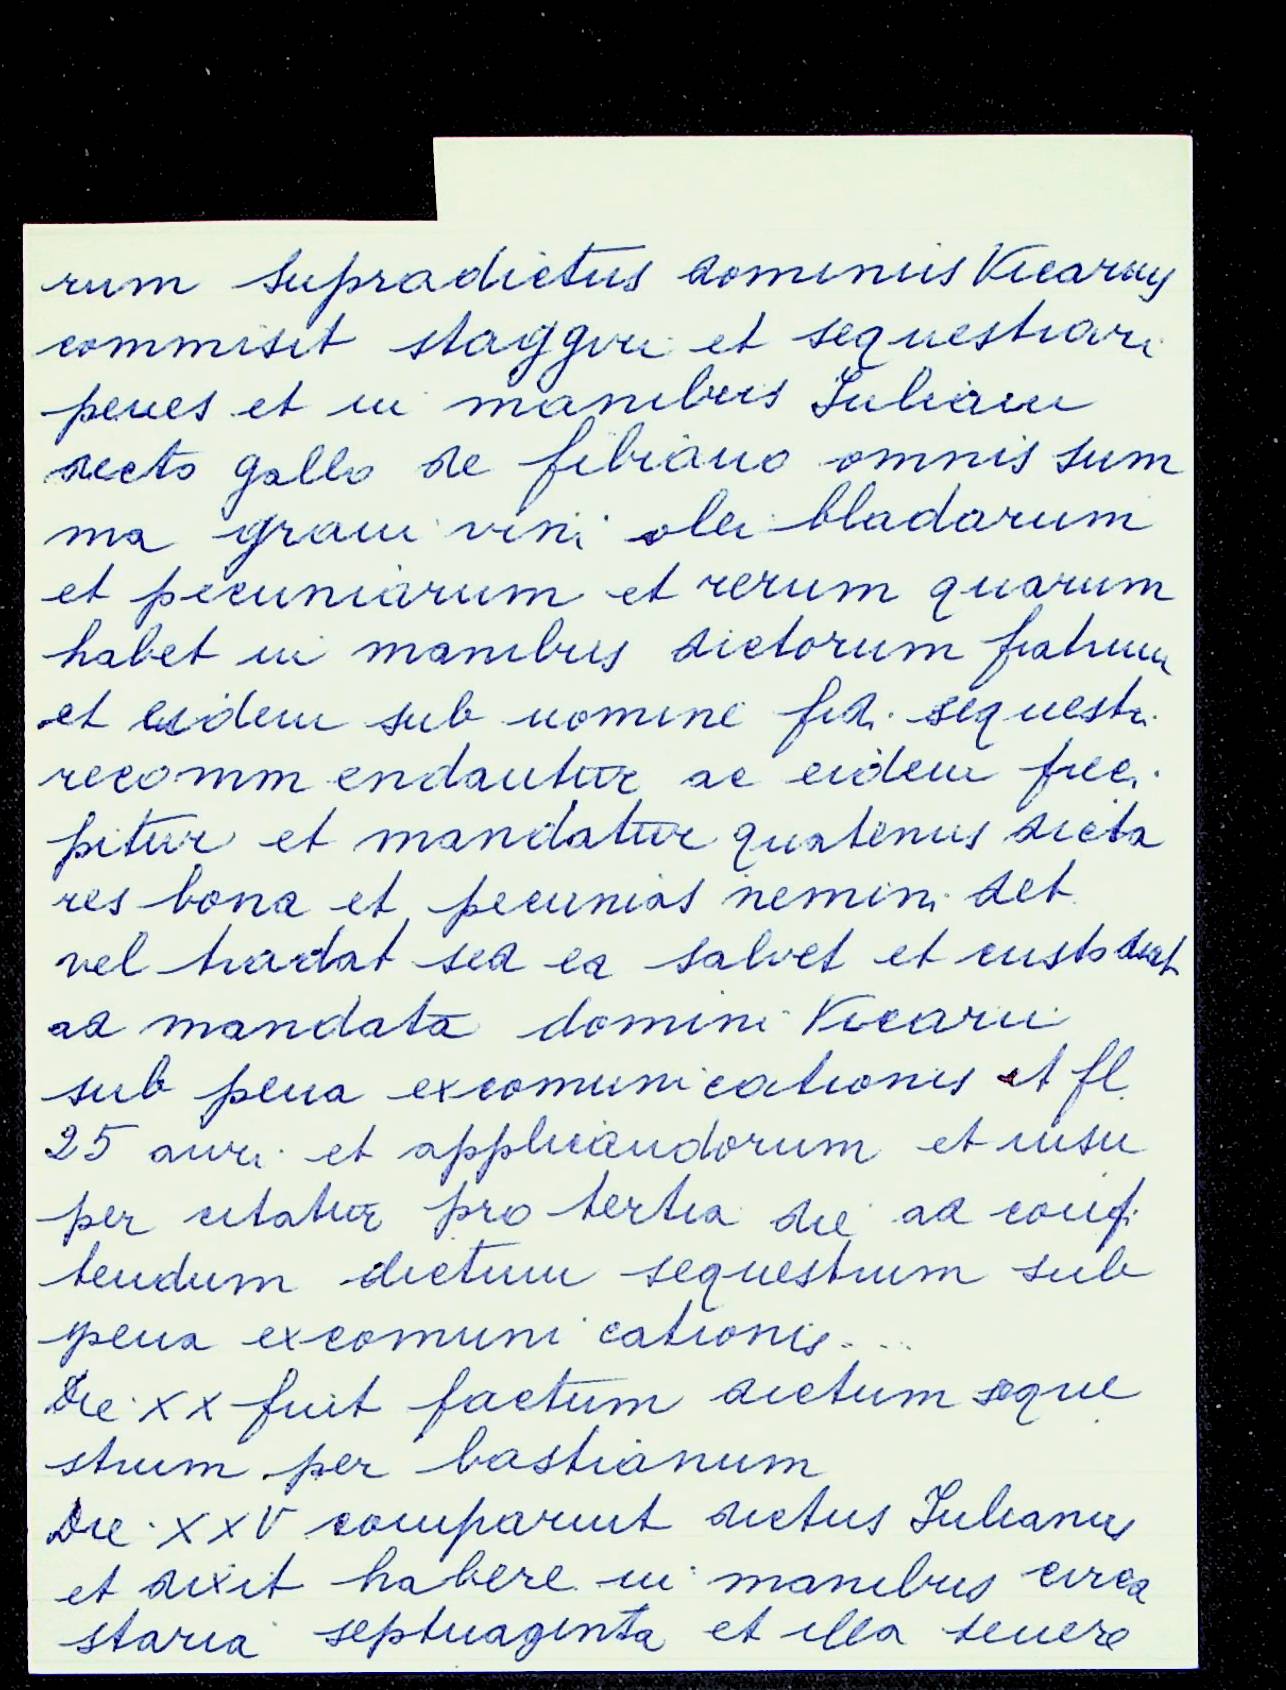 rum supradictus dominus Vicarius
commisit staggiri et sequestrari
penes et in manibus Iuliani
decto gallo de fibiano omnis sum
ma grani vini olei bladarum
et pecuniarum et rerum quarum
habet in manibus dictorum fratrum
et eidem sub nomine fidi sequestri
recommendantur ac eidem preci
pitur et mandatur quatenus dicta
res bona et pecunias nemini det
vel tradat sed ea salvet et custodiat
ad mandata domini Vicarii
sub pena excomunicationis et fl.
25 auri et applicandorum et insu
per citatur pro tertia die ad confi
tendum dictum sequestrum sub
pena excomunicationis....
Die XX fuit factum dictum seque
strum per bastianum
Die XXV comparuit dictus Iulianus
et dixit habere in manibus circa
staria septuaginta et illa tenere